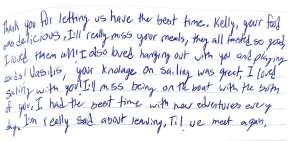 Thank you for letting us have the best time. Kelly, your food
was delicious, I'll really miss your meals, they all tasted so good,
I loved them all! I also loved hanging out with you and playing
cards! Vasilis, your knolage on sailing was great, I loved
sailing with you! I'll miss being on the boat with the both
of you, I had the best time with new adventures every
day. I'm really sad about leaving, Til we meet again.